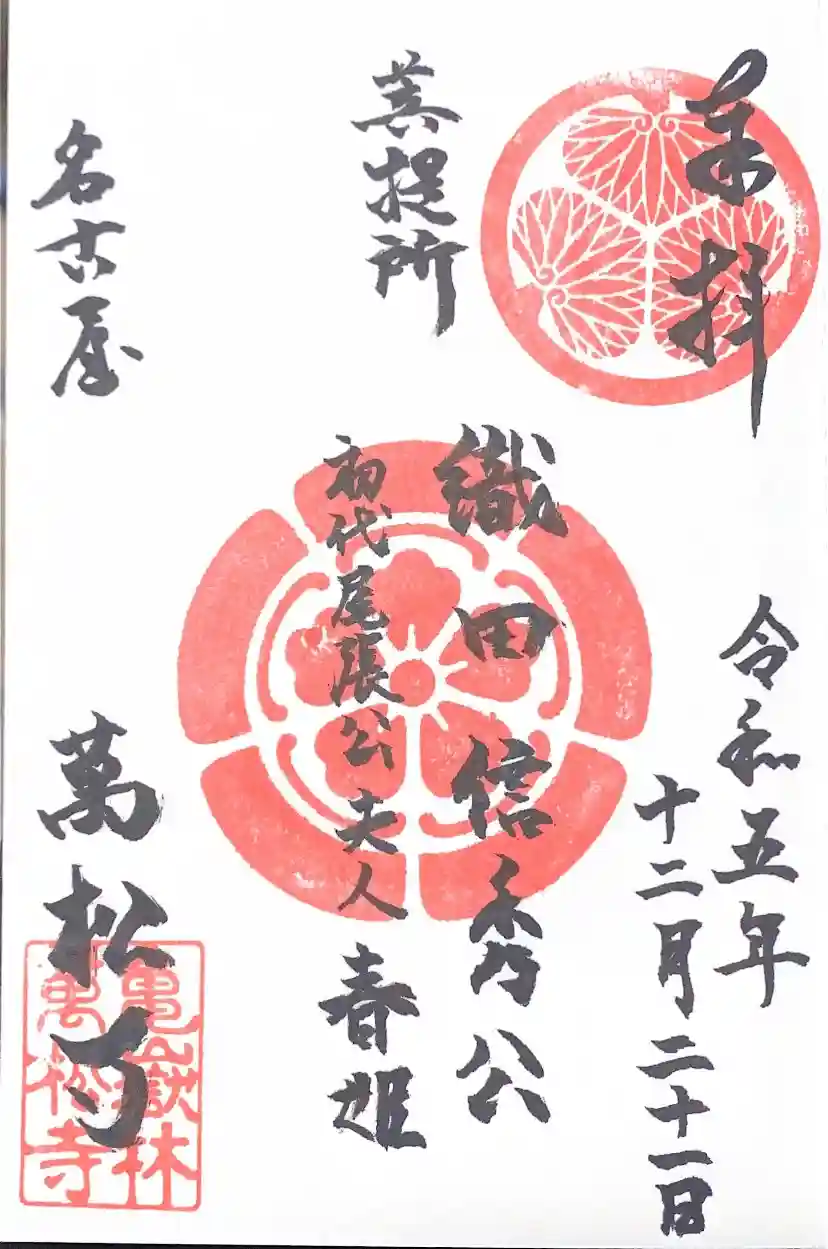 来拝
令和五年
十二月二十一日
菩提所
織田信秀公
初代尾張公夫人 春姫
名古屋
萬松寺
亀嶽林
萬松寺